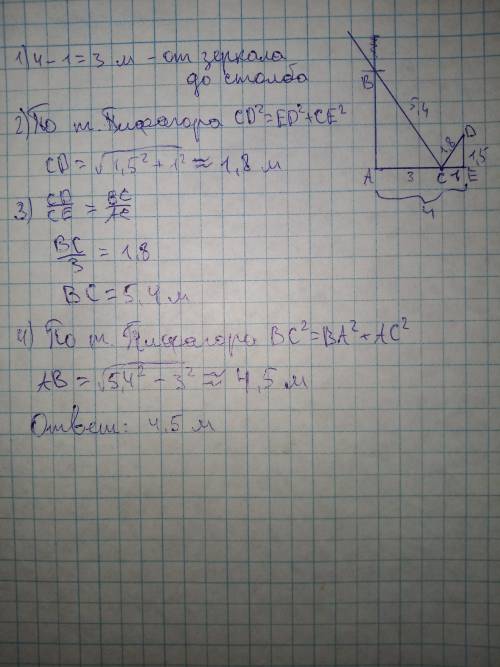 1) 4 - 1 = 3 м - от зеркала
до столба
2) По т. Пифагора CD² = ED² + CE²
CD = √1,5² + 1² ≈ 1,8 м
3) CD/CE = BC/AC
BC/3 = 1,8
BC = 5,4 м
4) По т. Пифагора BC² = BA² + AC²
AB = √5,4² - 3² ≈ 4,5 м
Ответ: 4,5 м
B
5,4
D
1,8
1,5
A
3
C
1
E
4